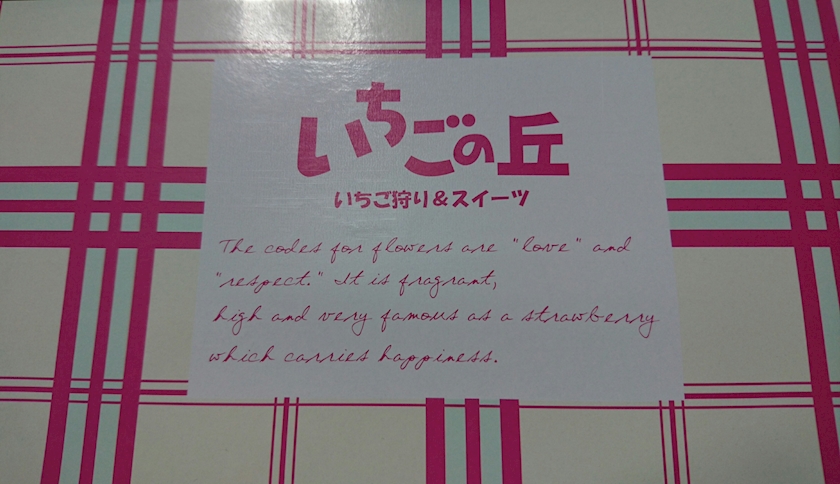 いちごの丘
いちご狩り&スイーツ
The codes for flowers are "love" and
"respect." It is fragrant,
high and very famous as a strawberry
which carries happiness.